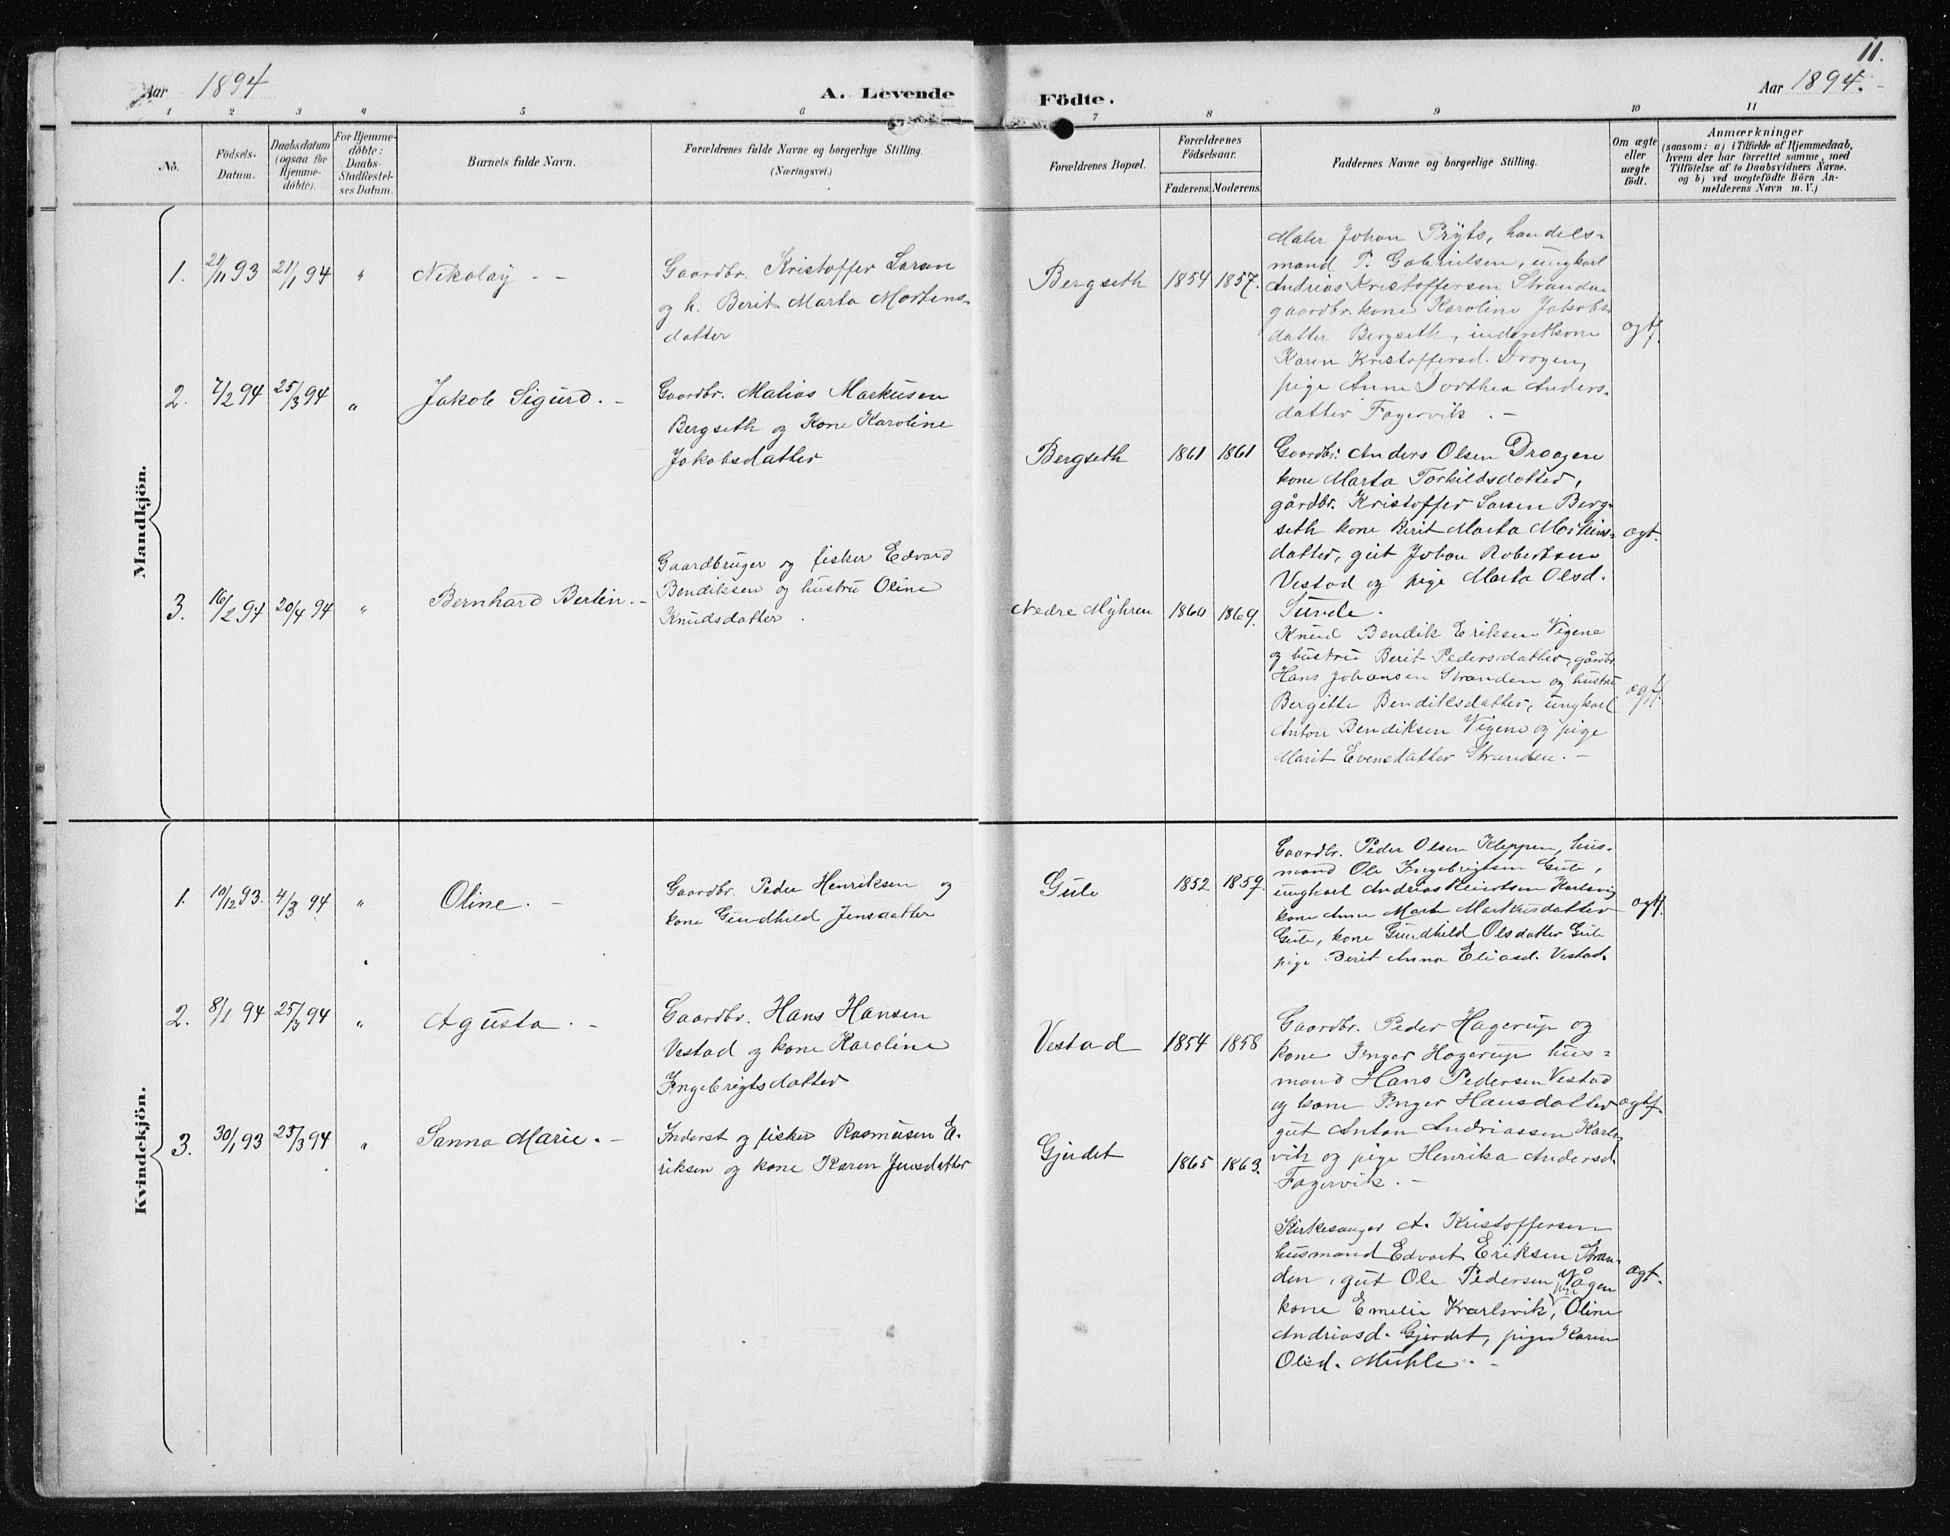 11.
Aar 1894
A. Levende
Födte.
Aar 1894.-
1 2 3 4 5 6 7 8 9 10 11
No.
Födsels-
Datum.
Daabsdatum
(ogsaa for
Hjemme-
döbte).
For Hjemme-
döbte:
Daabs-
Stadfæstel-
ses Datum.
Barnets fulde Navn.
Forældrenes fulde Navne og borgerlige Stilling.
(Næringsvei.)
Forældrenes Bopæl.
Forældrenes
Födselsaar.
Faderens. Moderens.
Faddernes Navne og borgerlige Stilling.
Om ægte
eller
uægte
født.
Anmærkninger
(saasom: a) i Tilfælde af Hjemmedaab,
hvem der har forrettet samme, med
Tilföielse af to Daabsvidners Navne.
og b) ved uægtefödte Börn An-
melderens Navn m. V.)
Mandkjön.
1. 21/11 93 21/1 94 " Nikolay. -
Gaardbr. Kristoffer Larsen
og h. Berit Marta Mortens-
datter
Bergseth 1854 1857.
Maler Johan Pryts, handels-
mand P. Gabrielsen, ungkarl
Andrias Kristoffersen Stranden
gaardbr. kone Karoline Jakobs-
datter Bergseth, inderstkone
Karen Kristoffersd. Drogen,
pige Anne Dorthea Anders-
datter Fagervik. -
ægtf.
2. 7/2 94 25/3 94 " Jakob Sigurd. -
Gaardbr. Matias Markusen
Bergseth og Kone Karoline
Jakobsdatter
Bergseth 1861 1861
Gaardbr. Anders Olsen Draagen
kone Marta Torkildsdatter,
gårdbr. Kristoffer Larsen Berg-
seth kone Berit Marta Mortens-
datter, gut Johan Robertsen
Vestad og pige Marta Olsd.
Sunde.
ægt.
3. 16/2 94 20/4 94 " Bernhard Bertin. -
Gaardbruger og fisker Edvard
Bendiksen og hustru Oline
Knudsdatter.
Nedre Myhren 1860 1869.
Knud Bendik Eriksen Vigene
og hustru Berit Pedersdatter, gårdbr.
Hans Johansen Stranden og hustru
Bergitte Bendiksdatter, ungkarl
Anton Bendiksen Vigene og pige
Marit Evensdatter Stranden. -
ægtf.
Kvindekjön.
1. 10/12 93. 4/3 94 " Oline. -
Gaardbr. Peder Henriksen og
kone Gundhild Jensdatter
Gule 1852 1859.
Gaardbr. Peder Olsen Kleppen, hus-
mand Ole Ingebrigtsen Gule,
ungkarl Andrias Karlsvig
kone Anne Marta Markusdatter
Gule, kone Gundhild Olsdatter Gule
pige Berit Anna Eliasd. Vestad.
ægtf.
2. 8/1 94 25/3 94 " Agusta. -
Gaardbr. Hans Hansen
Vestad og kone Karoline
Ingebrigtsdatter
Vestad 1854 1858
Gaardbr. Peder Hagerup og
kone Inger Hagerup hus-
mand Hans Pedersen Vestad
og kone Inger Hansdatter
gut Anton Andriassen Karls-
vik og pige Henrika Andersd.
Fagervik. -
ægtf.
3. 30/1 93 25/3 94 " Sanna Marie. -
Inderst og fisker Rasmusen E-
riksen og kone Karen Jensdatter
Gjerdet 1865 1863.
Kirkesanger A. Kristoffersen
husmand Edvart Eriksen Stran-
den, gut Ole Pedersen Vågen
kone Emelie Karlsvik, Oline
Andriasd. Gjerdet, pige Karen
Olsd. Muhle. -
ægt.